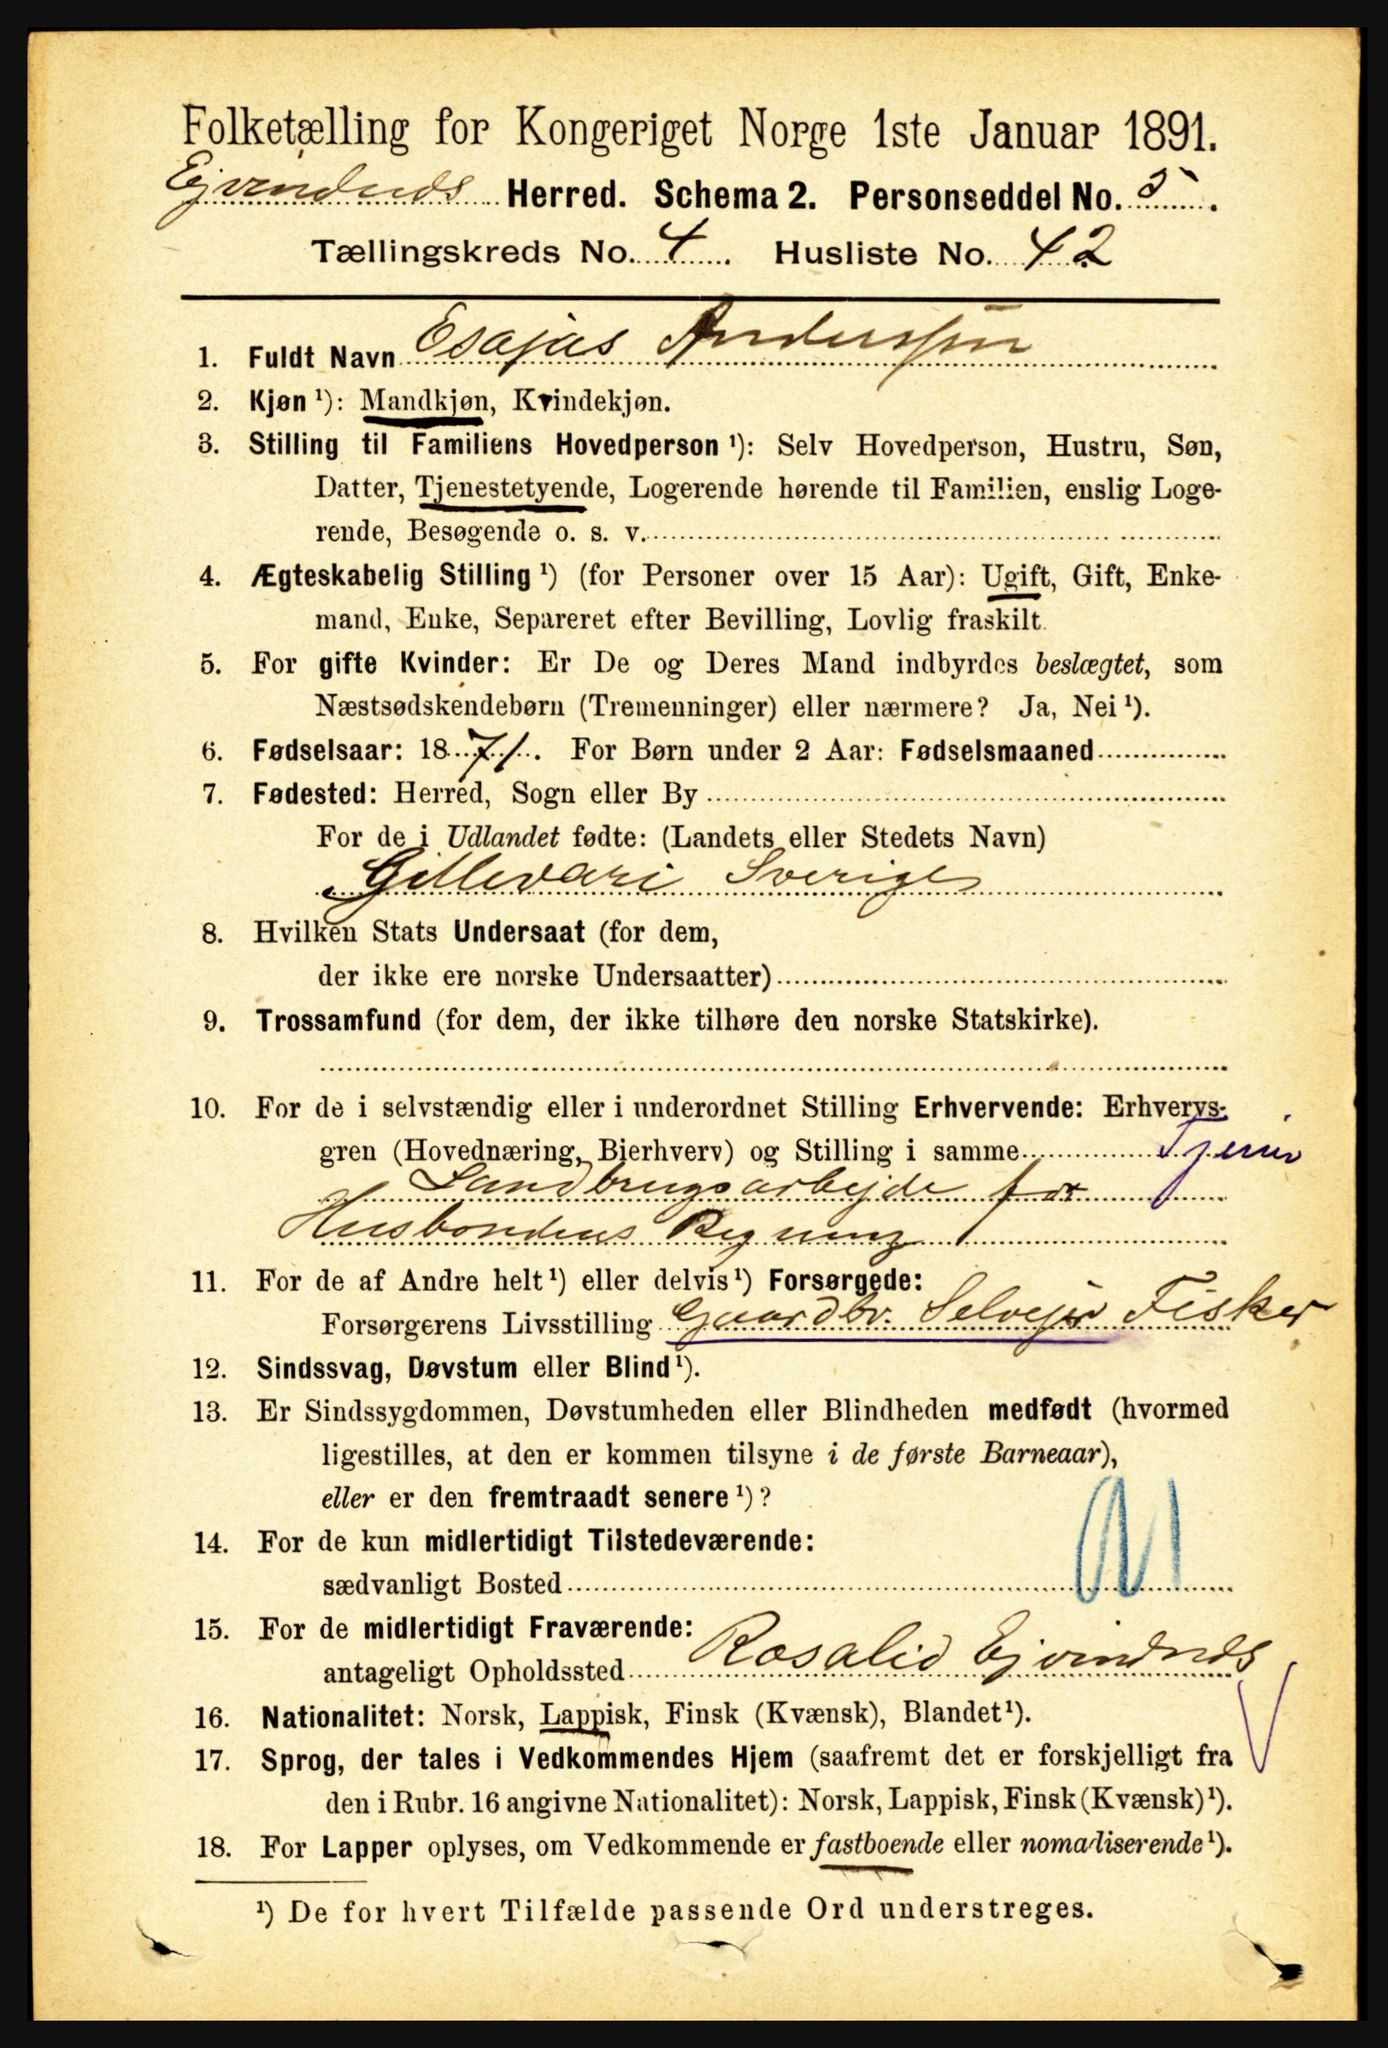 Folketælling for Kongeriget Norge 1ste Januar 1891.
Ejvindnds Herred. Schema 2. Personseddel No. 5.
Tællingskreds No. 4. Husliste No. 42
1. Fuldt Navn Esajas Anderssen
2. Kjøn ¹): Mandkjøn, Kvindekjøn.
3. Stilling til Familiens Hovedperson ¹): Selv Hovedperson, Hustru, Søn,
Datter, Tjenestetyende, Logerende hørende til Familien, enslig Loge-
rende, Besøgende o. s. v.
4. Ægteskabelig Stilling ¹) (for Personer over 15 Aar): Ugift, Gift, Enke-
mand, Enke, Separeret efter Bevilling, Lovlig fraskilt.
5. For gifte Kvinder: Er De og Deres Mand indbyrdes beslægtet, som
Næstsødskendebørn (Tremenninger) eller nærmere? Ja, Nei ¹).
6. Fødselsaar: 1871. For Børn under 2 Aar: Fødselsmaaned
7. Fødested: Herred, Sogn eller By
For de i Udlandet fødte: (Landets eller Stedets Navn)
Gellevari Sverige
8. Hvilken Stats Undersaat (for dem,
der ikke ere norske Undersaatter)
9. Trossamfund (for dem, der ikke tilhøre den norske Statskirke).
10. For de i selvstændig eller i underordnet Stilling Erhvervende: Erhvervs-
gren (Hovednæring, Bierhverv) og Stilling i samme Tjener
Landbrugsarbejde for
Husbondens Regning
11. For de af Andre helt ¹) eller delvis ¹) Forsørgede:
Forsørgerens Livsstilling Gaardbr. Selvejer Fisker
12. Sindssvag, Døvstum eller Blind ¹).
13. Er Sindssygdommen, Døvstumheden eller Blindheden medfødt (hvormed
ligestilles, at den er kommen tilsyne i de første Barneaar),
eller er den fremtraadt senere ¹)?
14. For de kun midlertidigt Tilstedeværende:
sædvanligt Bosted
15. For de midlertidigt Fraværende:
antageligt Opholdssted Rosalid Ejvindnds
16. Nationalitet: Norsk, Lappisk, Finsk (Kvænsk), Blandet ¹).
17. Sprog, der tales i Vedkommendes Hjem (saafremt det er forskjelligt fra
den i Rubr. 16 angivne Nationalitet): Norsk, Lappisk, Finsk (Kvænsk) ¹).
18. For Lapper oplyses, om Vedkommende er fastboende eller nomadiserende ¹).
¹) De for hvert Tilfælde passende Ord understreges.